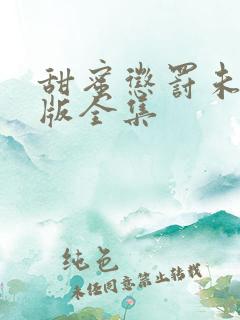 甜蜜惩罚未
版全集
纯色
未经同意禁止转载